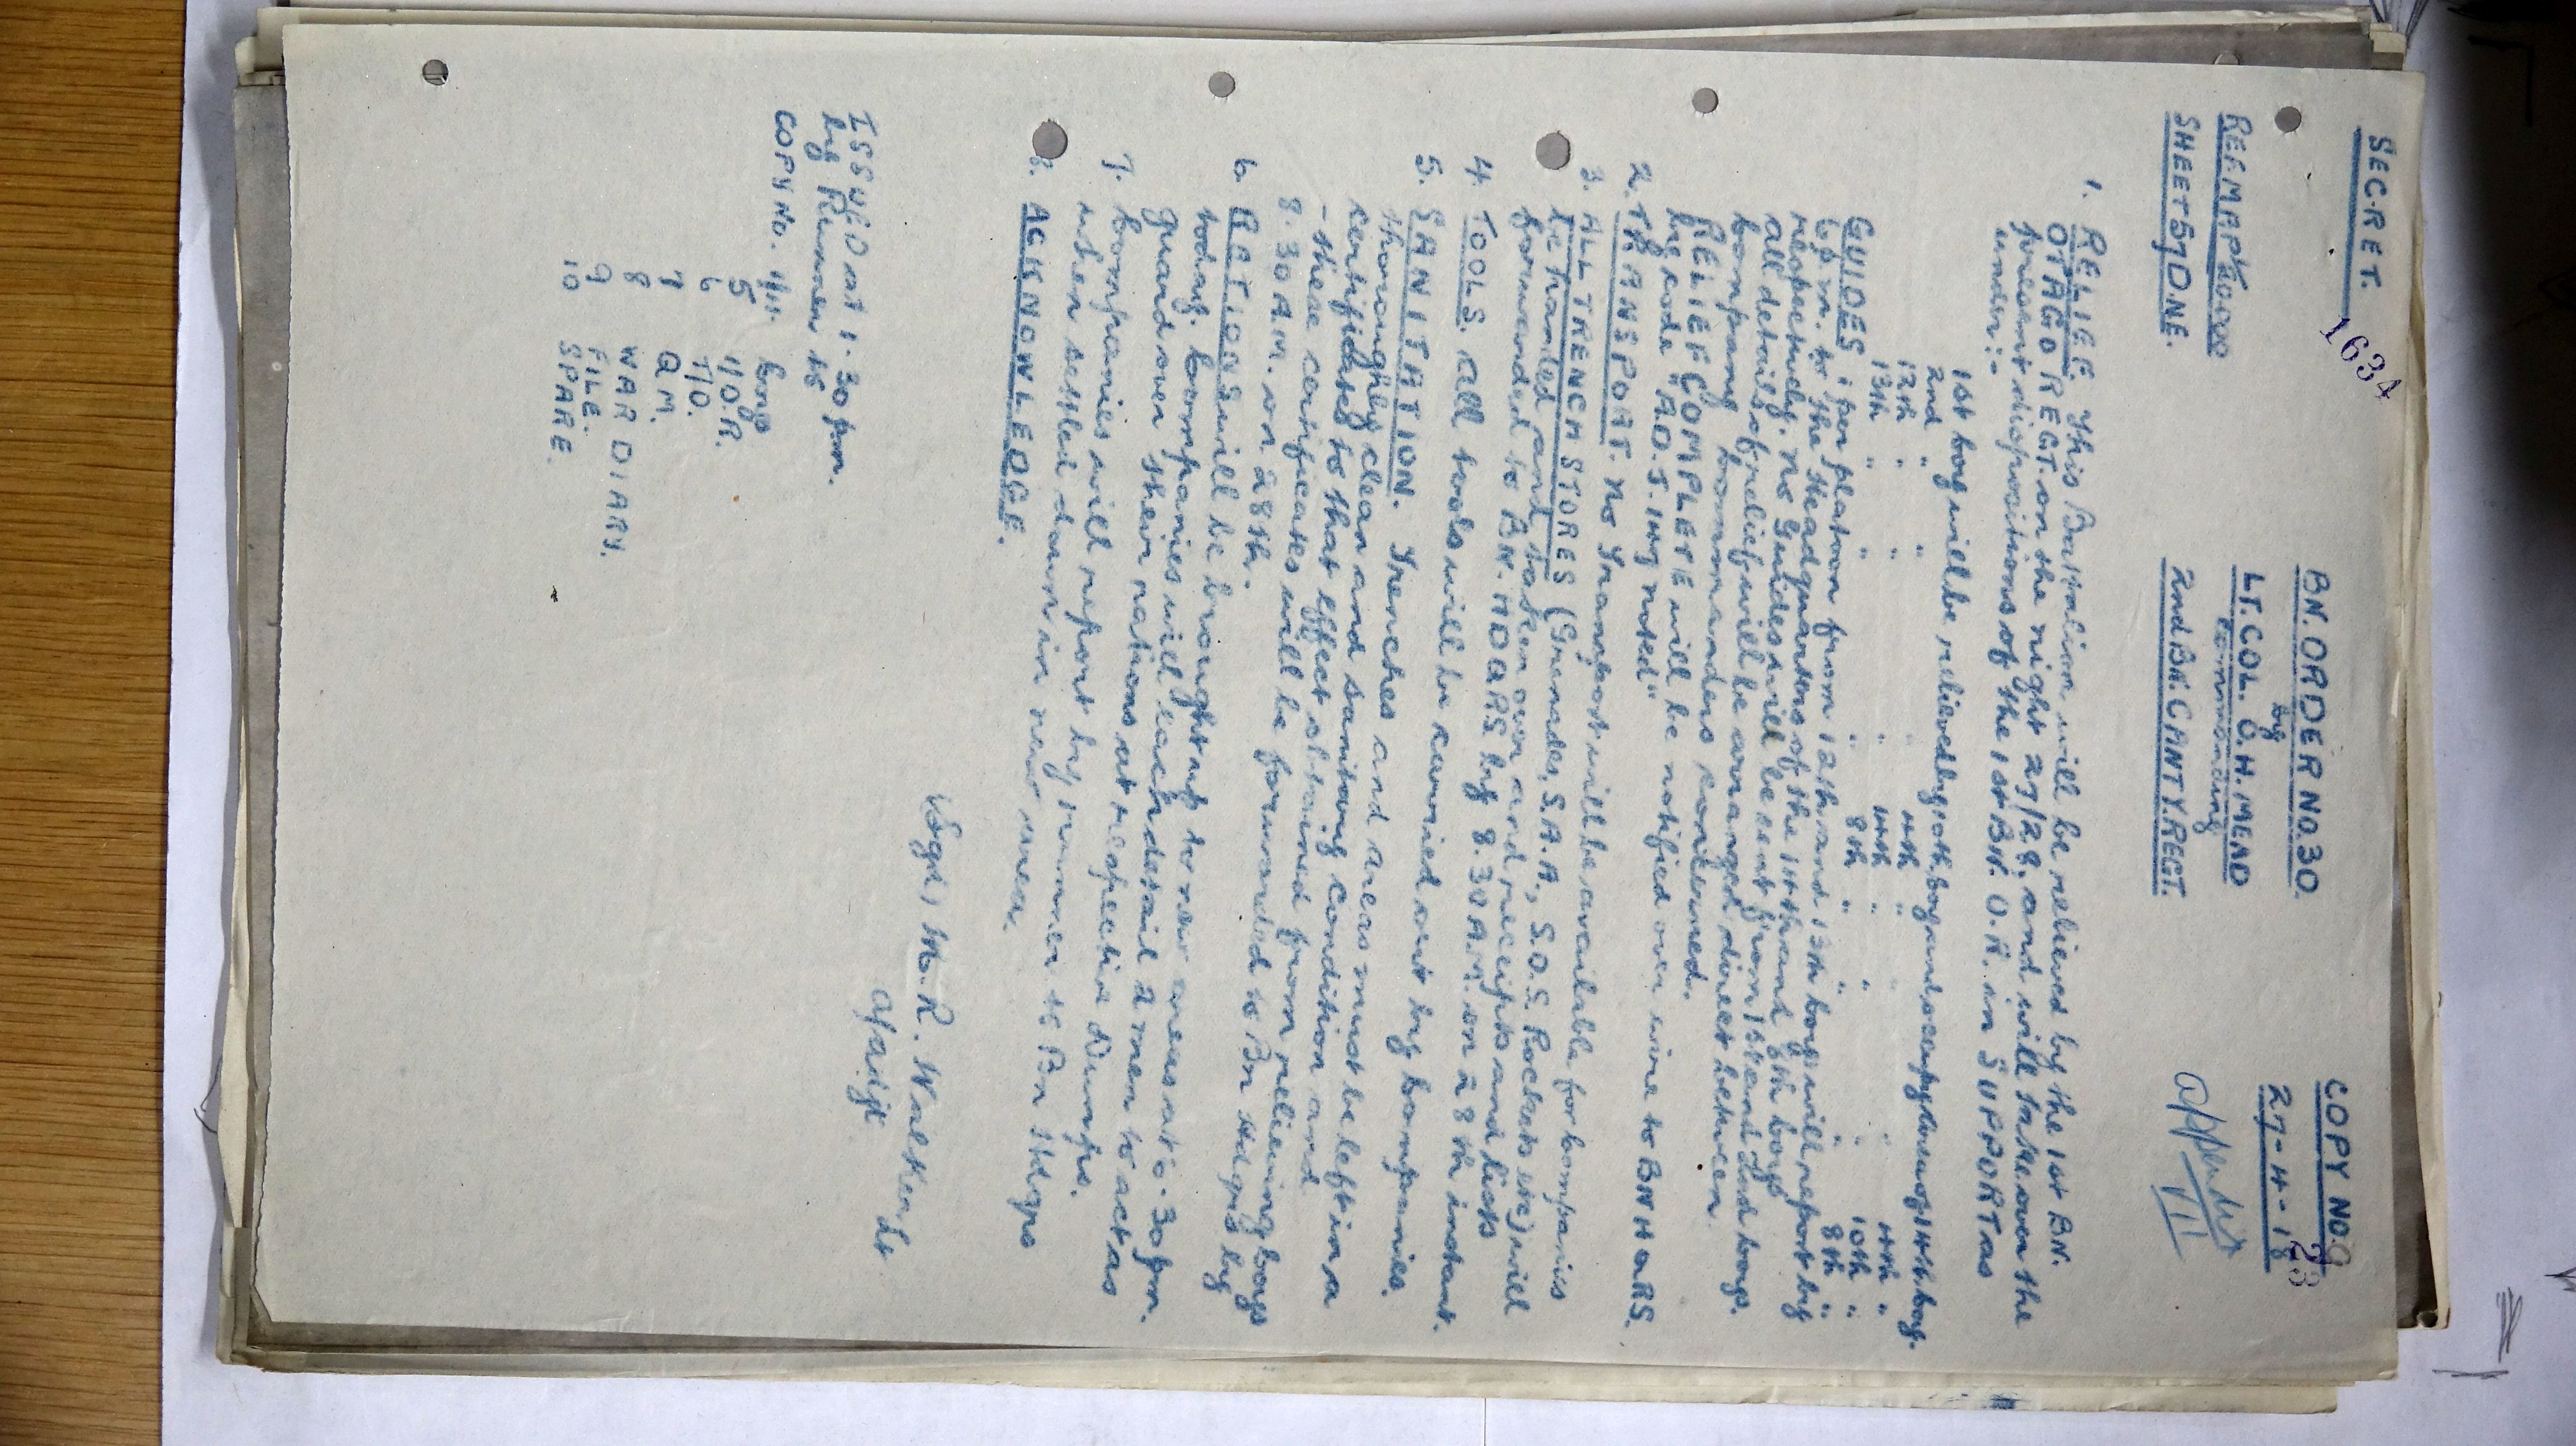 SECRET.
1634
BN. ORDER NO. 30.
COPY NO. 9
23
by
27-4-18
REF MAP 1/20.000
LT. COL. O.H. MEAD
Commanding
SHEET 57D.NE.
2nd BN. CANTY. REGT.
Appendix VII
1. RELIEF. This Battalion will be relieved by the 1st BN.
OTAGO REGT. on the night 27/28. and will take over the
present dispositions of the 1st BN. O.R. in SUPPORT as
under:-
1st Coy will be relieved by 10th Coy and occupy area of 14th Coy.
2nd " " " 4th " " 4th "
12th " " " 14th " " 10th "
13th " " " 8th " " 8th "
GUIDES 1 per platoon from 12th and 13th Coy will report by
6 p.m. to the Headquarters of the 14th and 8th Coys
respectively. No Guides will be sent from 1st and 2nd Coys.
all details of relief will be arranged direct between
Company Commanders concerned.
RELIEF COMPLETE will be notified over wire to BN HQRS.
by code "A.O.5.147 noted"
2. TRANSPORT. No Transport will be available for Companies
3. ALL TRENCH STORES (Grenades, S.A.A., S.O.S. Rockets etc) will
be handed and taken over and receipts and lists
forwarded to BN. HDQRS by 8.30 A.M. on 28th instant.
4. TOOLS. All tools will be carried out by Companies.
5. SANITATION. Trenches and areas must be left in a
thoroughly clean and sanitary condition and
certificates to that effect obtained from relieving Coys
- these certificates will be forwarded to Bn Hdqrs by
8.30 A.M. on 28th.
6. RATIONS will be brought up to new areas at 6.30 pm.
today. Companies will each detail 2 men to act as
guard over their rations at respective Dumps.
7. Companies will report by runner to Bn Hdqrs
when settled down in new area.
8. ACKNOWLEDGE.
(Sgd) M. R. Walker, Lt
A/adjt
ISSUED at 1.30 pm.
by Runner to
COPY No. 1/4 Coys
5 I/O.R.
6 T/O.
7 Q M.
8 WAR DIARY.
9 FILE.
10 SPARE.